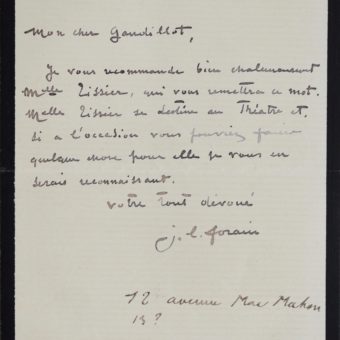 Mon cher Gandillot,
Je vous recommande bien chaleureusement
Melle Tissier, qui vous remettra ce mot.
Melle Tissier se destine au Théâtre et,
si a l'occasion vous pouviez faire
quelque chose pour elle je vous en
serais reconnaissant.
votre tout dévoué
j. l. forain
12 avenue Mac Mahon